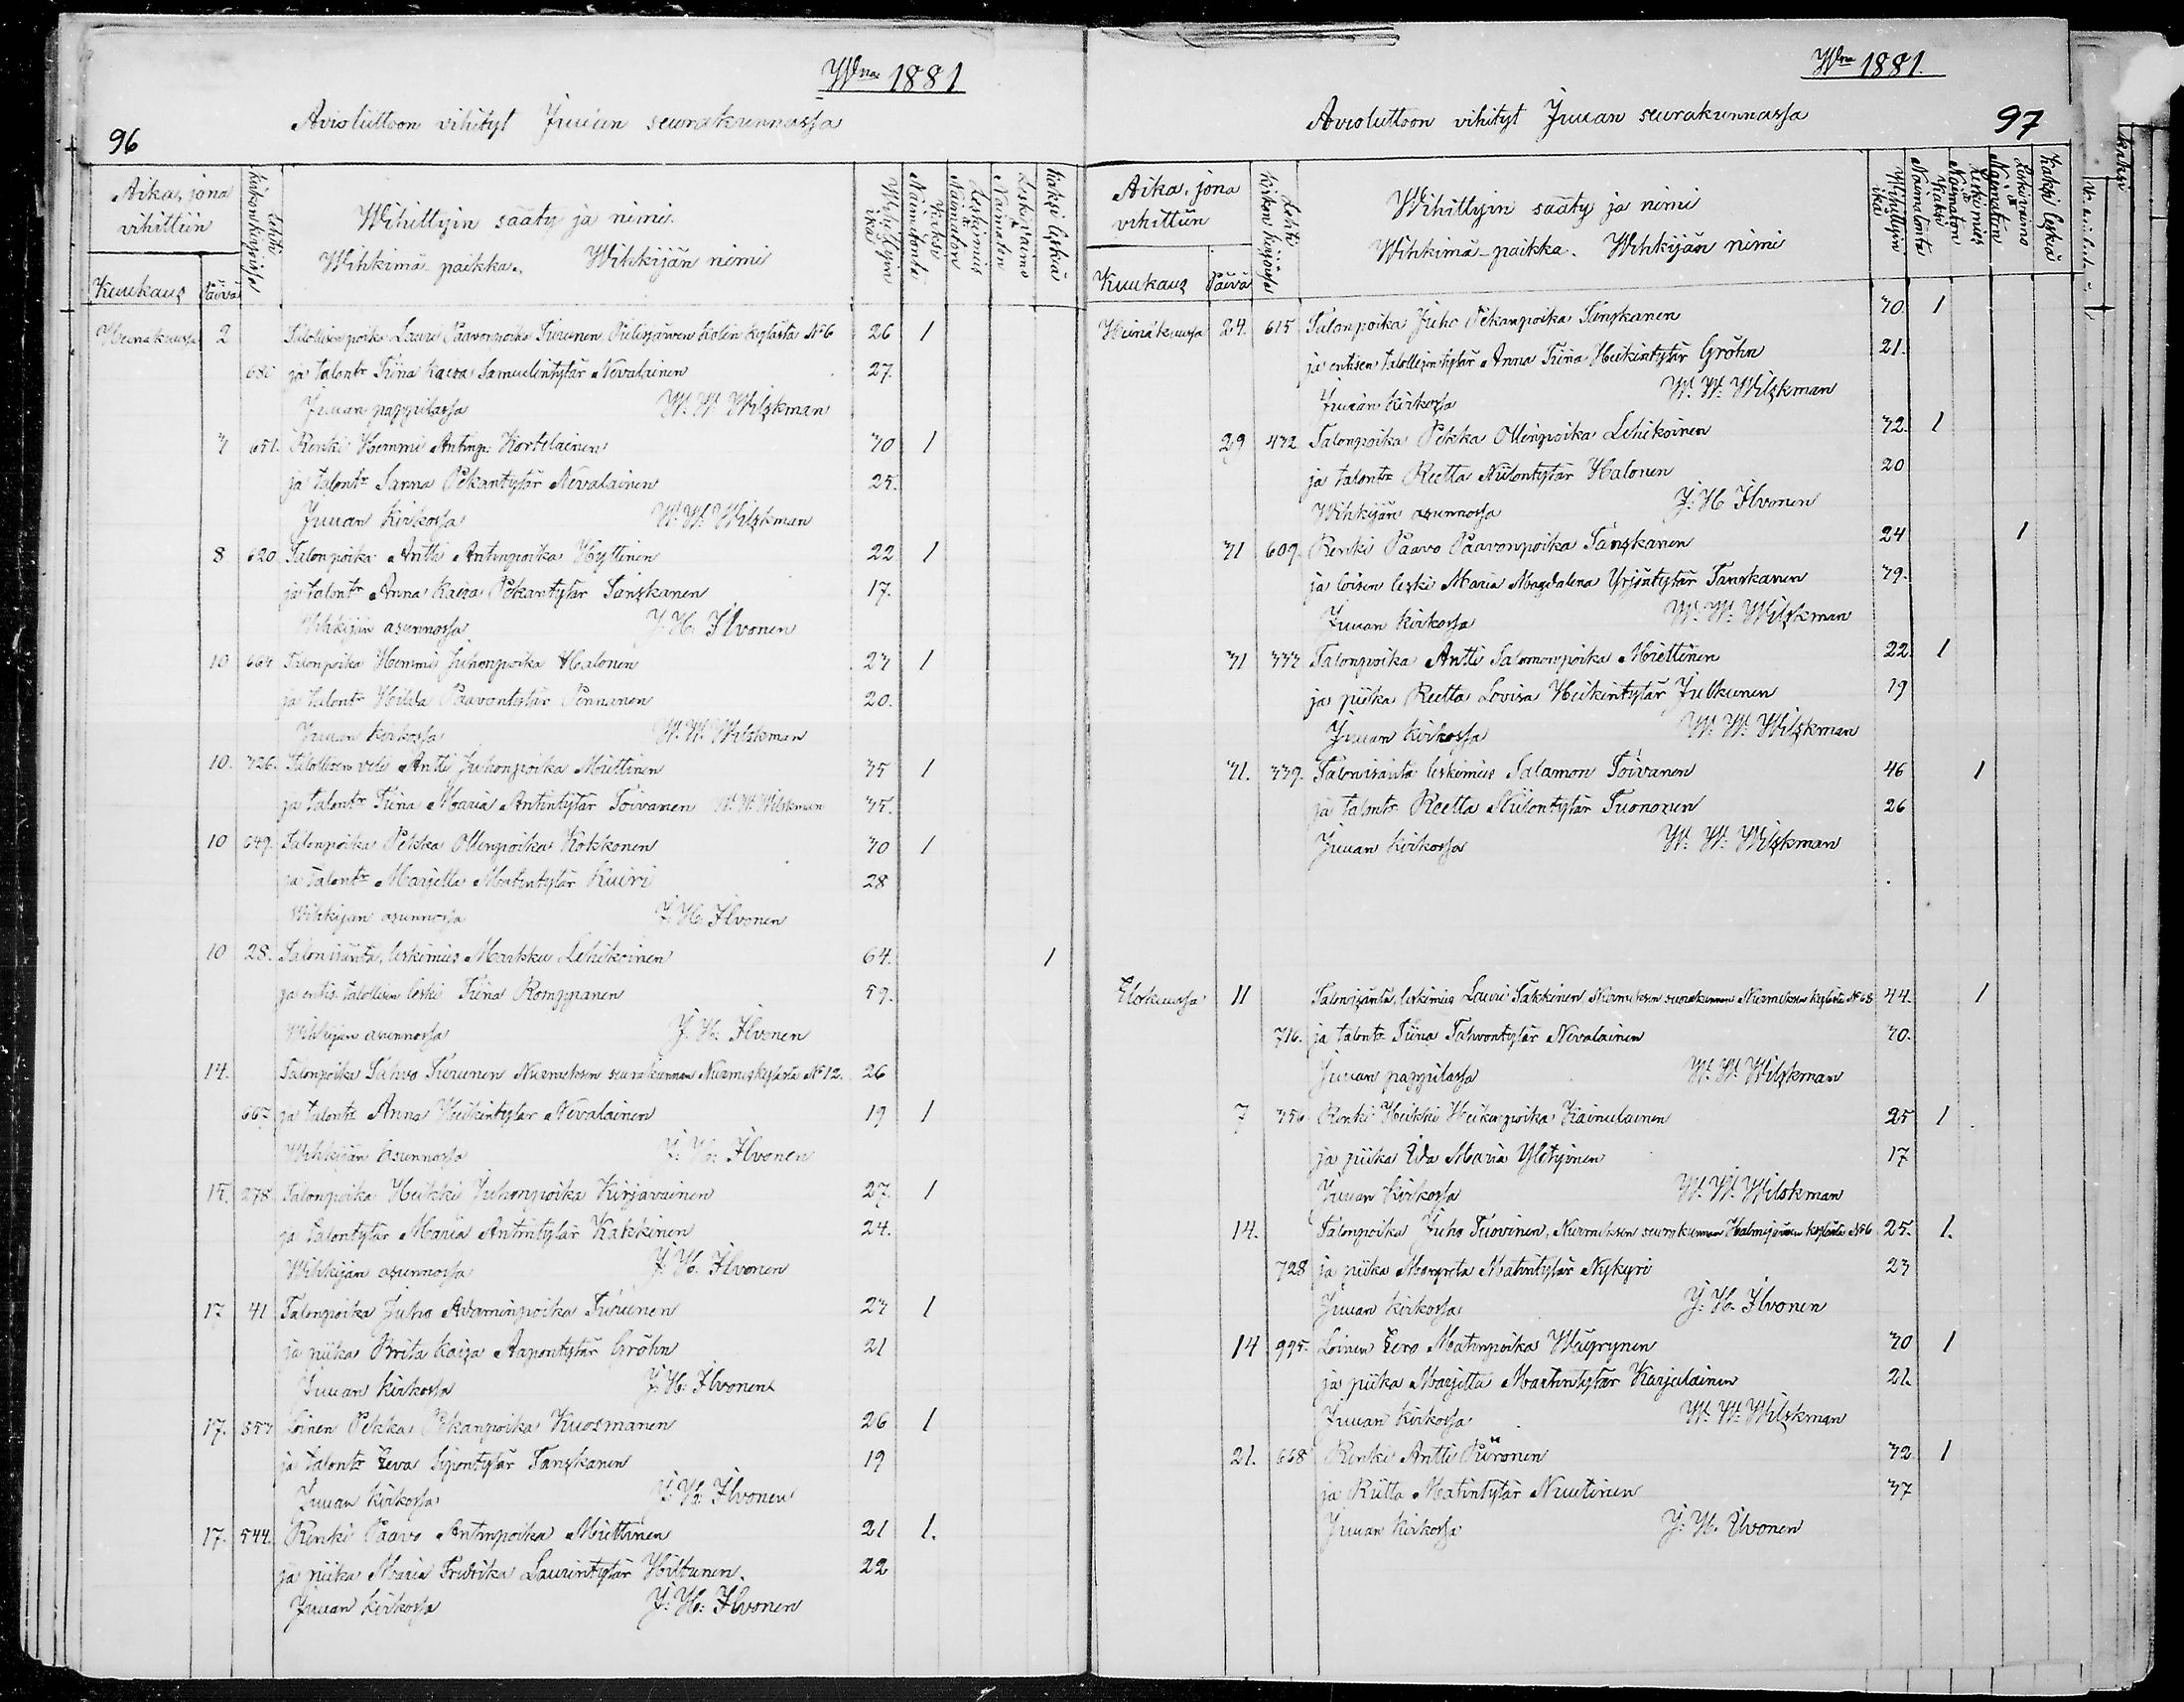 Wna 1881
96
Avioliittoon vihityt Juuan seurakunnassa
Aika, jona vihittiin
Kuukausi Päivä
Lehti kirkonkirjassa
Wihittyin sääty ja nimi.
Wihkimä-paikka. Wihkijän nimi
Wihittyin ikä
Kaksi Naimatonta
Leskimies Naimaton
Naimaton Leskivaimo
Kaksi leskeä
Heinakuussa 2 Talollisenpoika Lauri Paavonpoika Turunen Pielisjärven Kolin kylästä No 6 26 1
ja talontr Tiina Kaisa Samuelintytär Nevalainen 27.
Juuan pappilassa W. W. Wilskman
3 651. Renki Hemmi Antinp. Kortelainen 30 1
ja talontr Sanna Pekantytär Nevalainen 25.
Juuan kirkossa W. W. Wilskman
8 620 Talonpoika Antti Antinpoika Hyttinen 22 1
ja talontr Anna Kaisa Pekantytär Tanskanen 17.
Wihkijän asunnossa J. H. Ilvonen
10 664 Talonpoika Hemmi Juhonpoika Halonen 23 1
ja talontr Hilda Paavontytär Pennanen 20.
Juuan kirkossa W. W. Wilskman
10. 326. Talollisen veli Antti Juhonpoika Miettinen 35 1
ja talontr Tiina Maria Antintytär Toivanen W. W. Wilskman 35.
10 649. Talonpoika Pekka Ollinpoika Kokkonen 30 1
ja talontr Marjetta Matintytär Kuivi 28
Wihkijän asunnossa J. H. Ilvonen
10 28. Talon isäntä, leskimies Markku Lehikoinen 64. 1
ja entis. talollisen leski Tiina Romppanen 59.
Wihkijän asunnossa J. H. Ilvonen
14. Talonpoika Tahvo Turunen Nurmeksen seurakunnan Nurmeskylästä No 12. 26
667 ja talontr Anna Heikintytär Nevalainen 19 1
Wihkijän asunnossa J. H. Ilvonen
15. 278. Talonpoika Heikki Juhonpoika Kirjavainen 27. 1
ja talontytär Maria Antintytär Kakkinen 24.
Wihkijän asunnossa J. H. Ilvonen
17 41 Talonpoika Juho Adaminpoika Turunen 23 1
ja piika Brita Kaisa Aapontytär Gröhn 21
Juuan kirkossa J. H. Ilvonen
17. 553 Loinen Pekka Pekanpoika Kuosmanen 26 1
ja talontr Eeva Sipontytär Tanskanen 19
Juuan kirkossa J. H. Ilvonen
17. 544. Renki Paavo Antinpoika Miettinen 21 1.
ja piika Maria Fredrika Laurintytär Hiltunen. 22
Juuan kirkossa J. H. Ilvonen
Wna 1881.
97
Avioluttoon vihityt Juuan seurakunnassa
Aika, jona vihittiin
Kuukausi Päivä
Lehti kirkon kirjassa
Wihittyin sääty ja nimi
Wihkimä-paikka. Wihkijän nimi
Wihittyin ikä
Kaksi Naimatonta
Leskimies ja Naimaton
Naimaton ja Leskivaimo
Kaksi leskeä
Heinäkuussa 24. 615 Talonpoika Juho Pekanpoika Tanskanen 30. 1
ja entisen talollisentytär Anna Tiina Heikintytär Gröhn 21.
Juuan kirkossa W. W. Wilskman
29 432 Talonpoika Pekka Ollinpoika Lehikoinen 32. 1
ja talontr Reetta Niilontytär Halonen 20
Wihkijän asunnossa J. H. Ilvonen
31 609. Renki Paavo Paavonpoika Tanskanen 24 1
ja loisen leski Maria Magdalena Yrjöntytär Tanskanen 39.
Juuan kirkossa W. W. Wilskman
31 333 Talonpoika Antti Salomonpoika Miettinen 22. 1
ja piika Reetta Lovisa Heikintytär Julkunen 19
Juuan kirkossa W. W. Wilskman
31. 339. Talonisäntä leskimies Salamon Toivanen 46 1
ja talontr Reetta Niilontytär Tuononen 26
Juuan kirkossa W. W. Wilskman
Elokuussa 11 Talonisäntä, leskimies Lauri Takkinen Nurmeksen seurakunnan Nurmeksen kylästä No 68 44. 1
716. ja talontr Tiina Tahvontytär Nevalainen 30.
Juuan pappilassa W. W. Wilskman
7 356 Renki Heikki Heikinpoika Kainulainen 25 1
ja piika Ida Maria Yletyinen 17
Juuan kirkossa W. W. Wilskman
14. Talonpoika Juho Tuovinen, Nurmeksen seurakunnan Halmejärven kylästä No 6 25. 1.
728 ja piika Margreta Matintytär Nykyri 23
Juuan kirkossa J. H. Ilvonen
14 995. Loinen Eero Matinpoika Wäyrynen 30 1
ja piika Marjetta Martintytär Karjalainen 21.
Juuan kirkossa W. W. Wilskman
21. 668 Renki Antti Piironen 32. 1
ja Riitta Matintytär Nuutinen 37
Juuan kirkossa J. H. Ilvonen